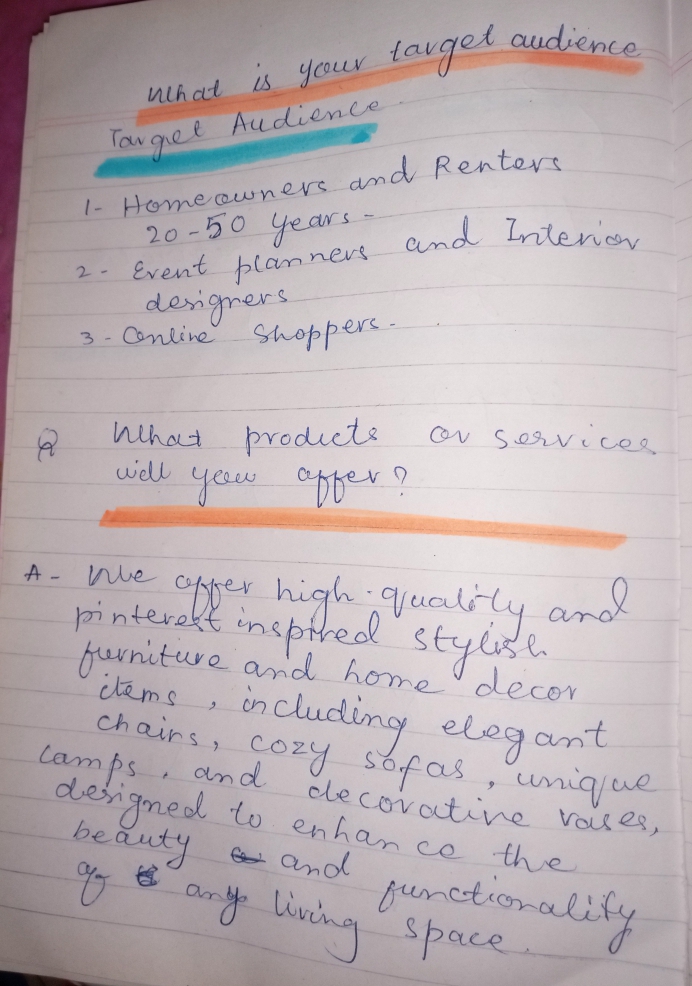 What is your target audience
Target Audience
1- Homeowners and Renters
20-50 years-
2- Event planners and Interior
designers
3- Online Shoppers-
Q What products or services
will you offer?
A- We offer high-quality and
pinterest inspired stylish
furniture and home decor
items, including elegant
chairs, cozy sofas, unique
lamps, and decorative vases,
designed to enhance the
beauty and functionality
of any living space.